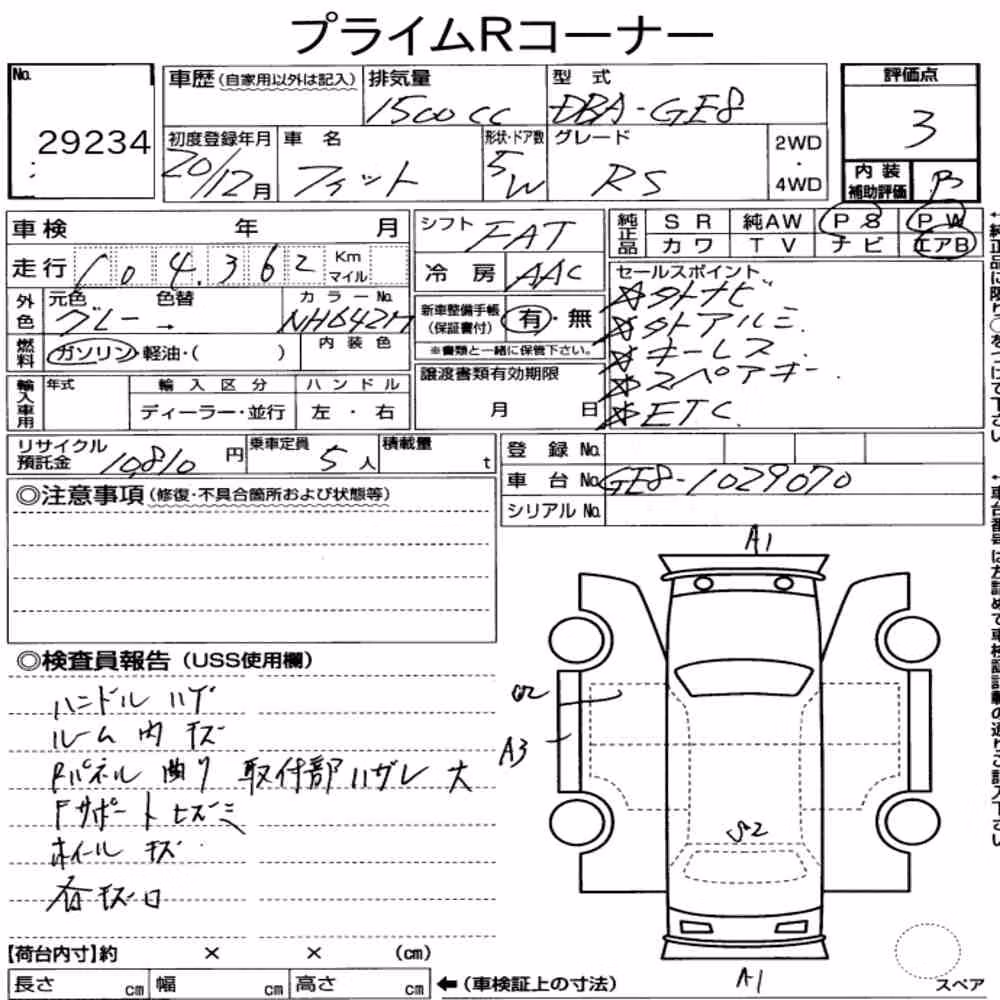 プライムRコーナー
No. 29234
車歴 (自家用以外は記入)
排気量 1500cc
型式 DBA-GE8
評価点 3
初度登録年月 20/12月
車名 フィット
形状・ドア数 5W
グレード RS
2WD・4WD
内装補助評価 B
車検 年 月
走行 104,362 Km マイル
外色 元色 グレー → 色替
カラーNo. NH642M
燃料 ガソリン・軽油・( )
内装色
輸入車用 年式
輸入区分 ディーラー・並行
ハンドル 左・右
シフト FAT
冷房 AAC
新車整備手帳(保証書付) 有・無
※書類と一緒に保管下さい。
譲渡書類有効期限
月 日
純正品 SR 純AW PS PW
カワ TV ナビ エアB
セールスポイント
☆外ナビ
☆外アルミ.
☆キーレス
☆スペアキー.
☆ETC.
←純正品に限り○をつけて下さい
リサイクル預託金 10,810円
乗車定員 5人
積載量 t
登録No.
車台No. GE8-1029070
シリアルNo.
←車台番号は左詰めで車検証記載の通りご記入下さい
◎注意事項 (修復・不具合箇所および状態等)
◎検査員報告 (USS使用欄)
ハンドル ハゲ
ルーム内 キズ
Rパネル 曲り 取付部ハガレ 大
Fサポート ヒズミ
ホイール キズ
各キズ口
A1
A3
S2
A1
スペア
【荷台内寸】約 × × (cm)
長さ cm 幅 cm 高さ cm ←(車検証上の寸法)